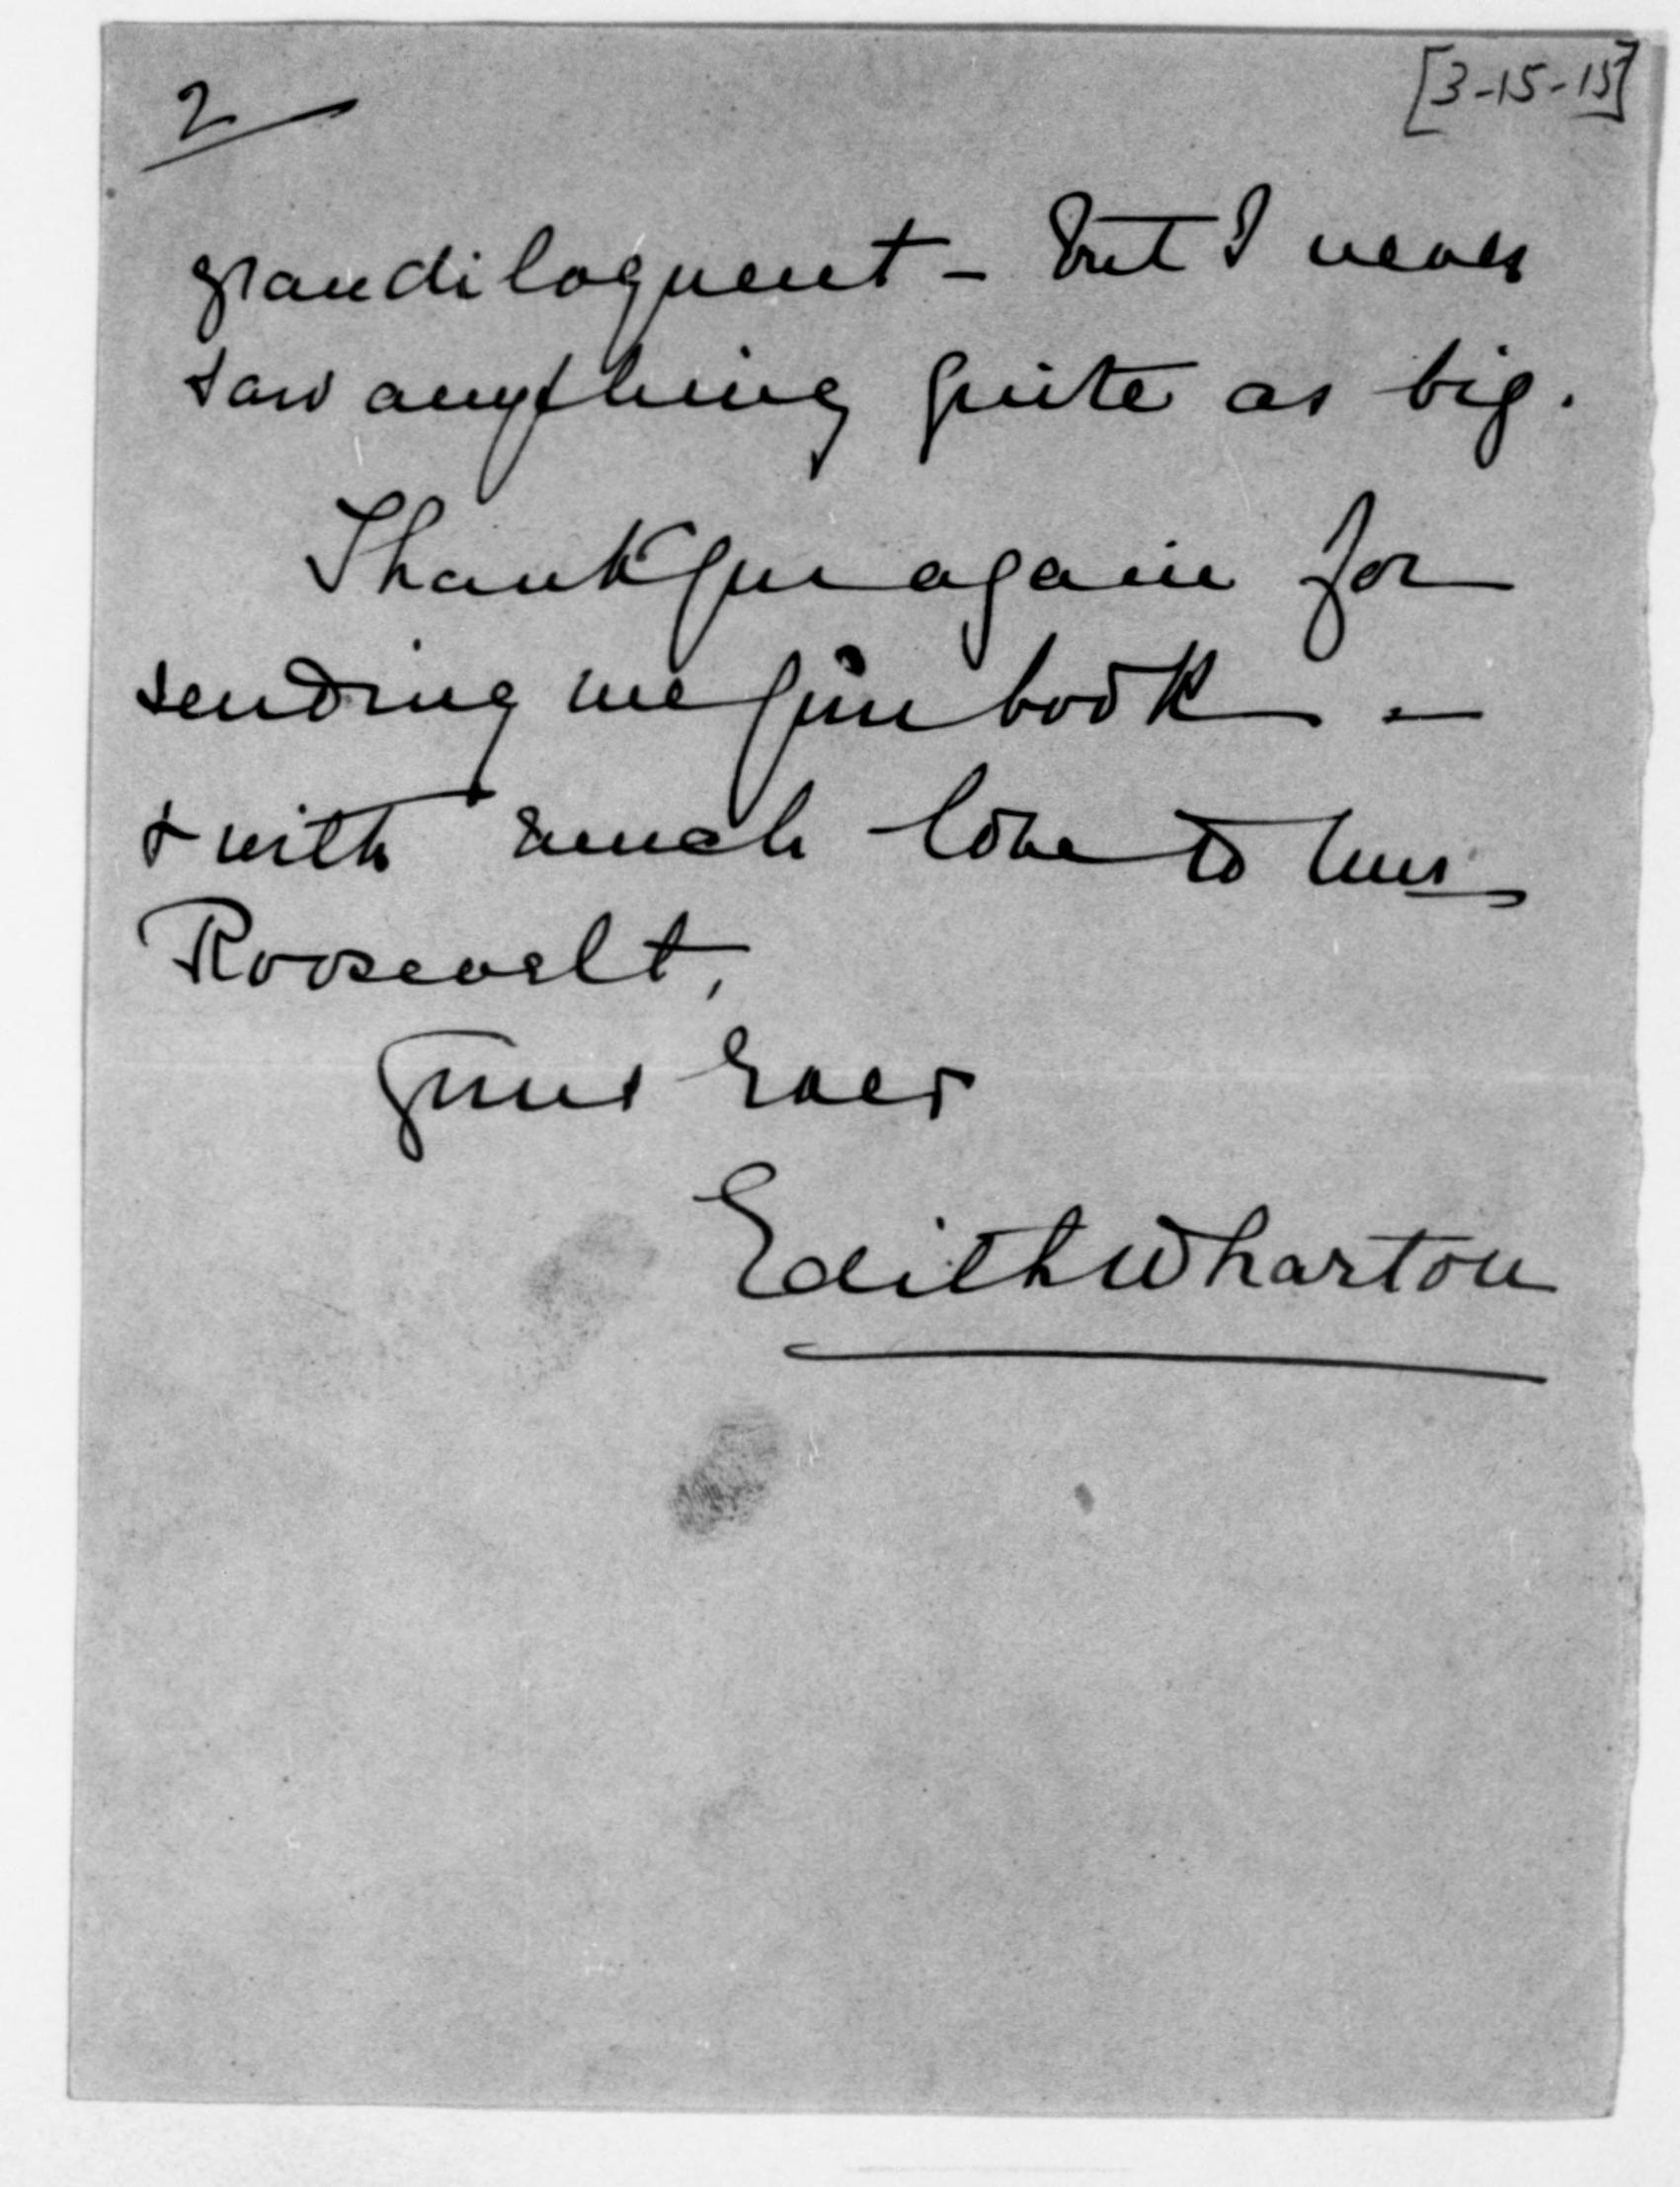 2
[3-15-15]
grandiloquent - but I never
saw anything quite as big.
Thank you again for
sending me your book -
& with much love to Mrs
Roosevelt,
Yours Ever
Edith Wharton